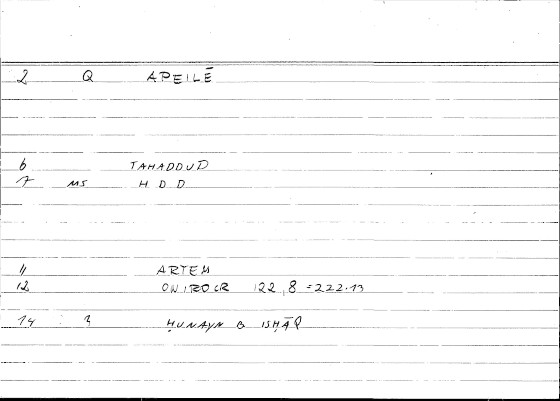 2 Q APEILĒ
6 TAHADDUD
7 MS H D D
11 ARTEM
12 ONIROCR 122,8 = 222.13
14 2 ḤUNAYN B ISḤĀQ